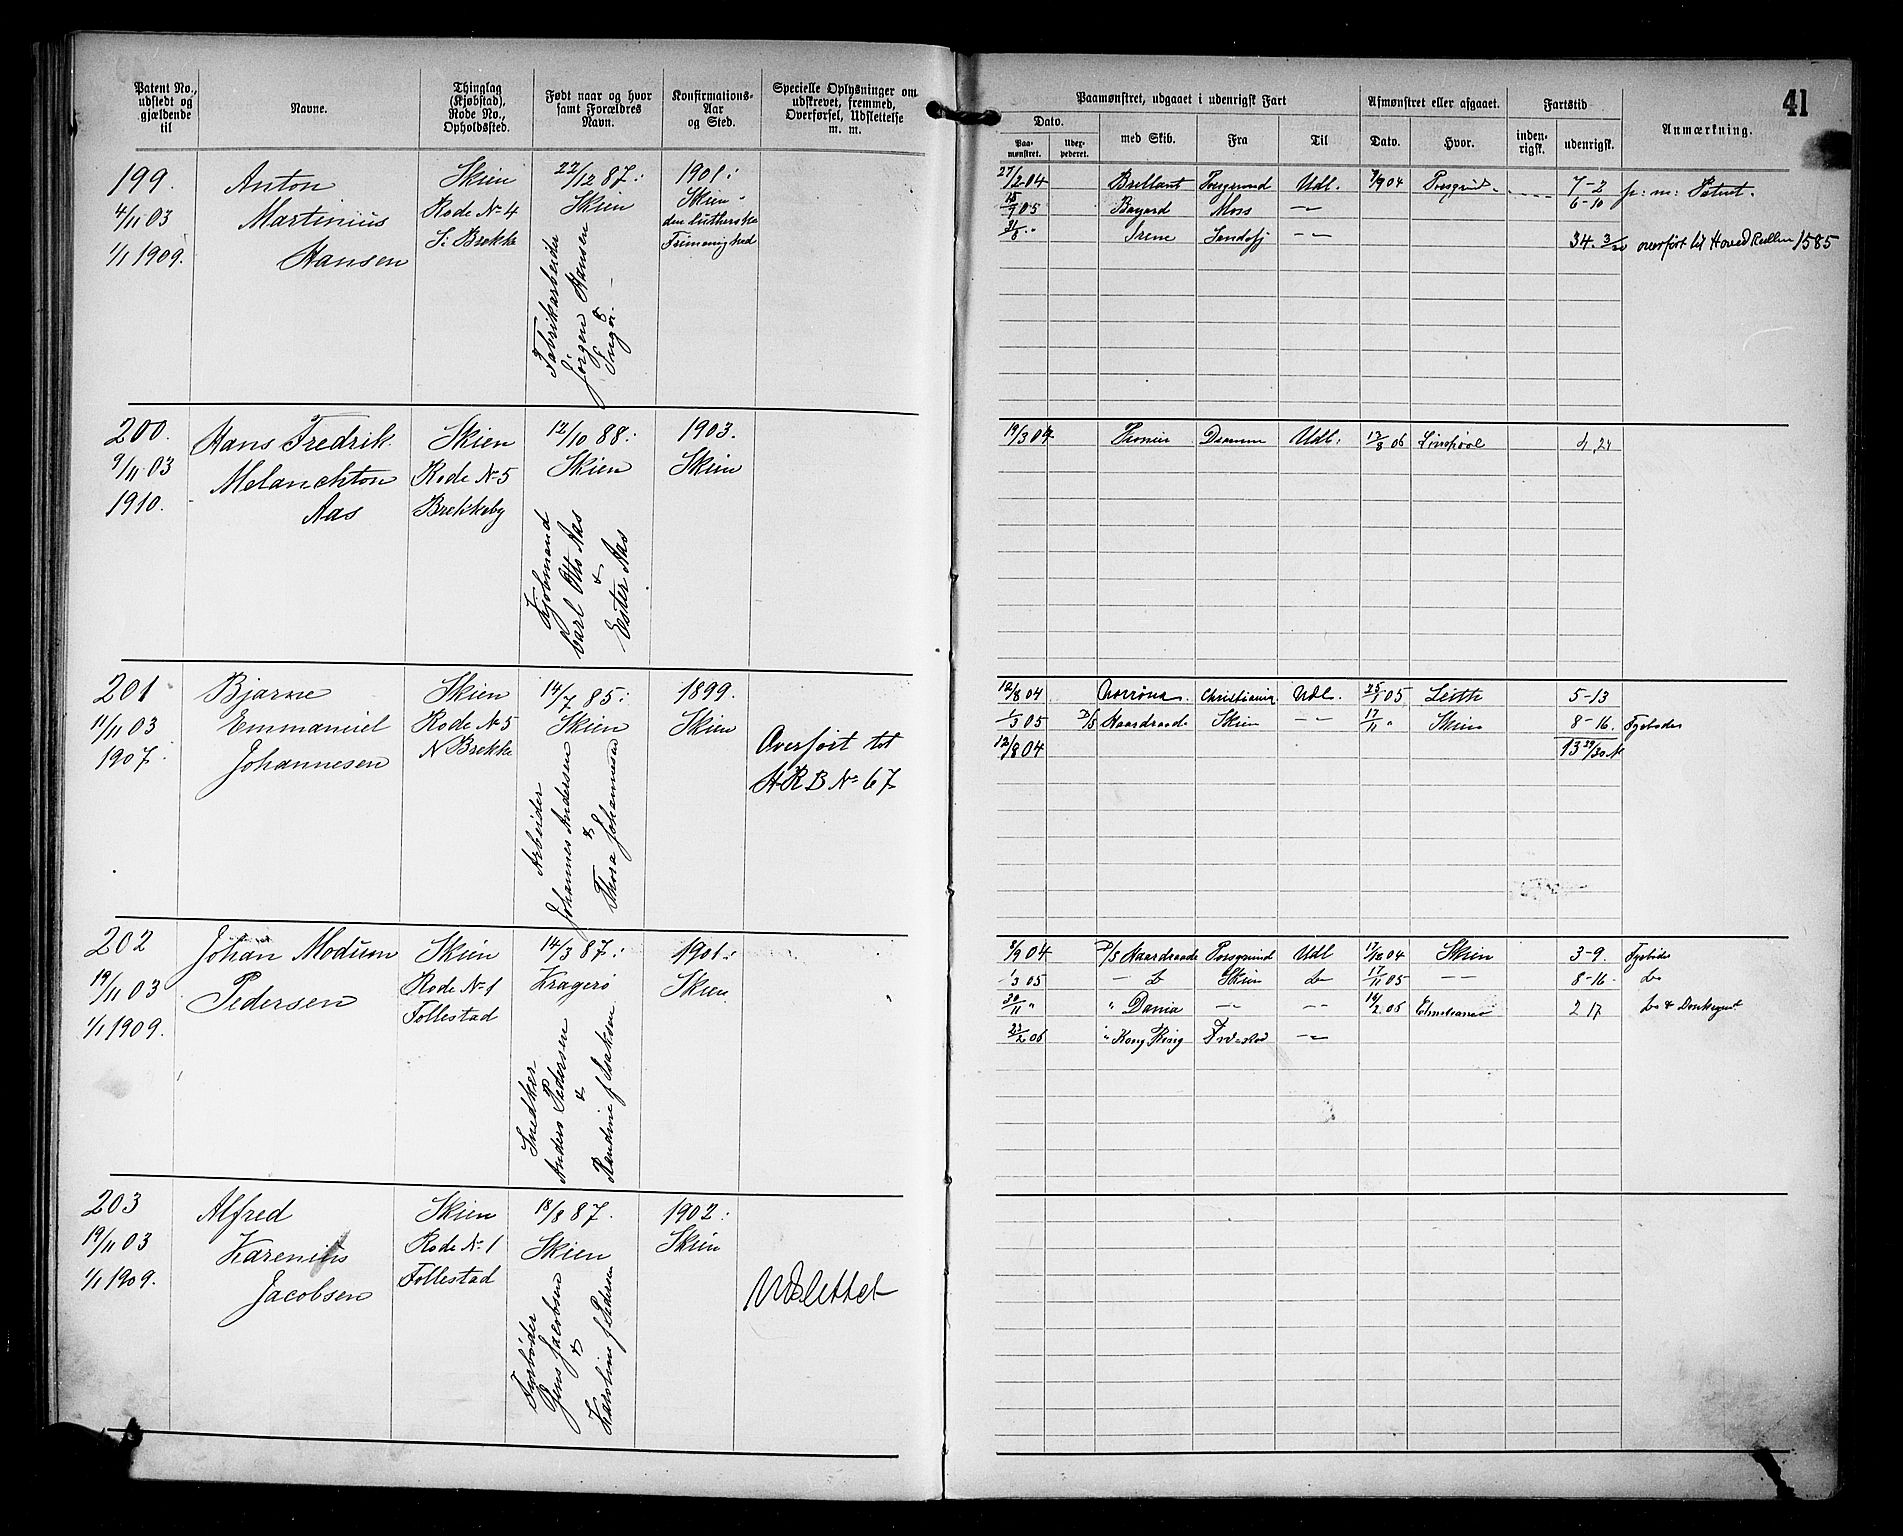 41
Patent No., udstedt og gjældende til
Navne.
Thinglag (Kjøbstad), Rode No., Opholdssted.
Født naar og hvor samt Forældres Navn.
Konfirmations-Aar og Sted.
Specielle Oplysninger om udskrevet, fremmed, Overførsel, Udslettelse m. m.
Paamønstret, udgaaet i udenrigsk Fart
Afmønstret eller afgaaet.
Fartstid
Anmærkning.
Dato.
Paa-mønstret.
med Skib.
Fra
Til
Dato.
Hvor.
inden-rigsk.
udenrigsk.
199.
4/11 03
1/1 1909.
Anton
Martinius
Hansen
Skien
Rode No 4
S: Brekke
22/12 87:
Skien
Fabrikarbeider
Jørgen Hansen
&
1901:
Skien
den lutherske
Frimenighed
27/2 04 Brillant Porsgrund Udl. 9/9 04 Porsgrund 7-2 p: m: Patent.
Bayard Moss 6-10
Irene Sandefj
overført til Hoved Rullen 1585
200.
9/11 03
1910.
Hans Fredrik
Melanchton
Aas
Skien
Rode No 5
Brekkeby
12/10 88:
Skien
Kjøbmand
Carl Otto Aas
&
Ester Aas
1903.
Skien
19/3 04 Dramm Udl: 06 4,24
201
11/11 03
1907.
Bjarne
Emmanuel
Johannesen
Skien
Rode No 5
N Brekke
14/7 85:
Skien
Arbeider
Johannes Andersen
&
Thora Johannesen
1899.
Skien
Overført tit
H R B No 67
12/8 04 Norröna Christiania Udl. 05 Leith 5-13
1/3 05 D/S Haardraade Skien 17/11 " Skien 8-16. Fyrbøder
12/8 04 13 29/30 M
202
19/11 03
1/1 1909.
Johan Modum
Pedersen
Skien
Rode No 1
Follestad
14/3 87:
Kragerø
Snedker
Anders Pedersen
&
f Isaksen
1901:
Skien
8/9 04 D/S Haardraade Porsgrund Udl 04 Skien 3-9. Fyrbøder
1/3 05 Do Skien Do 17/11 05 8-16. Do
30/11 " " Dania 2 17
23/2 06 " Kong Ring
203
19/11 03
1/1 1909.
Alfred
Karenius
Jacobsen
Skien
Rode No 1
Follestad
18/8 87.
Skien
Fyrbøder
Jens Jacobsen
&
Karoline f Pedersen
1902:
Skien
Udslettet